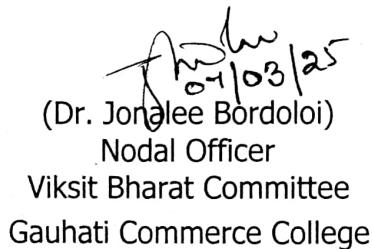 07/03/25
(Dr. Jonalee Bordoloi)
Nodal Officer
Viksit Bharat Committee
Gauhati Commerce College